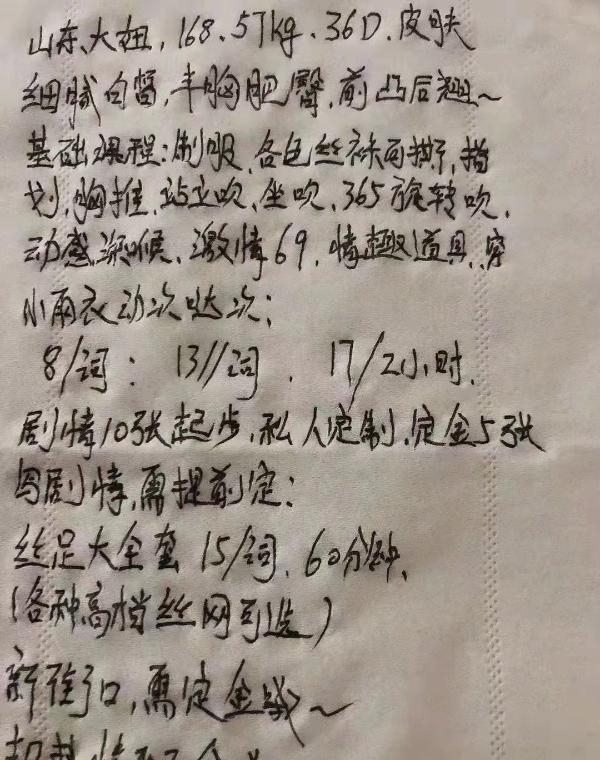 山东、大妞，168.57kg、36D.皮肤
细腻白皙，丰胸肥臀，前凸后翘～
基础课程：制服、各色丝袜可撕，指
划，胸推、站立吹、坐吹、365旋转吹、
动感深喉、激情69、情趣道具、穿
小雨衣动次哒次；
8/词：13//词、17/2小时、
剧情10张起步、私人定制、定金5张
写剧情，需提前定；
丝足大全套 15/词、60分钟、
（各种高档丝网可选）
新街口，需定金哦～